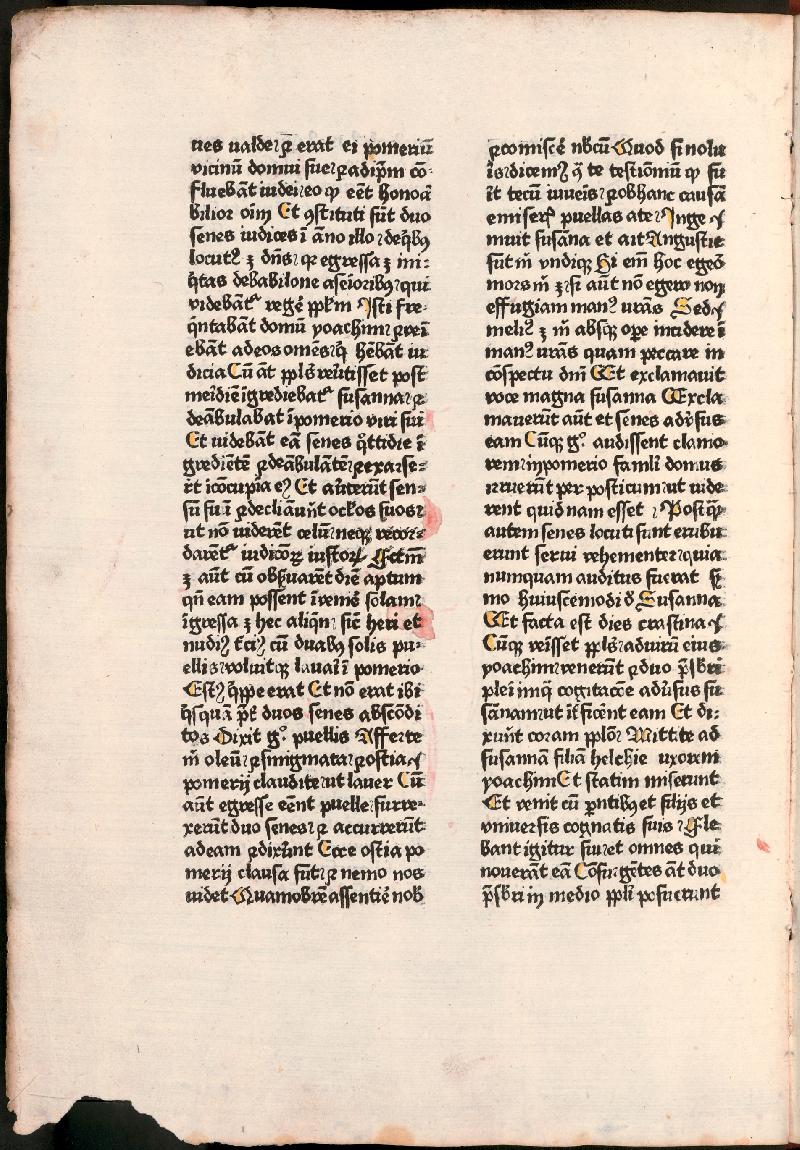 ues ualde ⁊ erat ei pomeriū
vicinū domui sue ⁊ ad ip̄m cō-
fluebāt iudei eo ꝙ eēt honoā
bilior oīm Et ꝯstituti sūt duo
senes iudices ī āno illo de q̄bꝰ
locutꝰ ꝫ dn̄s qꝛ egressa ꝫ ini-
q̄tas de babilone a seīoribꝰ qui
videbātᷣ regē pplm Isti fre-
q̄ntabāt domū yoachim ⁊ veī
ebāt ad eos omēs q̄ hēbāt iu
dicia Cū āt ppls reūtisset post
meīdiē īgrediebatᷣ susanna ⁊
deābulabat ī pomerio viri sui
Et uidebāt eā senes q̄ttidie ī
gredientē ⁊ deābulātē ⁊ exarse-
rt ī cōcupīa eꝰ Et aūterūt sen-
sū suī ⁊ decliauūt oclos suos
ut nō uiderēt celū neqꝫ recor-
darētᷣ iudicoꝝ iustoꝝ Fctm̄
ꝫ aūt cū obsuarēt diē aptum
qn̄ eam possent īvenīē solam
īgressa ꝫ hec aliqn̄ siē heri et
nudiꝰ tciꝰ cū duabꝰ solis pu-
ellis uoluitqꝫ lauaī ī pomerio
Estꝰ q̄ppe erat Et nō erat ibi
q̄squā p̄t duos senes abscōdi
tos Dixit gͦ puellis Afferte
m̄ oleū ⁊ smigmata ⁊ ostia
pomerij claudite ut lauer Cū
aūt egresse eēnt puelle surre-
xerūt duo senes ⁊ accurrerūt
ad eam ⁊ dixūnt Ecce ostia po
merij clausa sūt ⁊ nemo nos
uidet Quamobrē assentiē nob
⁊ comiscē nbcū Quod si nolu
īs dicemꝰ ꝯ te testiōmū ꝙ fu
īt tecū iuueīs ⁊ ob hanc causā
emiserꝭ puellas a te Inge
muit susāna et ait Angustie
sūt m̄ vndiqꝫ Si em̄ hoc egeō
mors m̄ ꝫ si aūt nō egero non
effugiam manꝰ urās Sed
melꝰ ꝫ m̄ absqꝫ ope incidere ī
manꝰ urās quam peccare in
cōspectu dn̄i Et exclamauit
voce magna susanna Excla
mauerūt aūt et senes adūsus
eam Cūqꝫ gͦ audissent clamo
rem in pomerio famli domus
irruerūt per posticum ut uide
rent quid nam esset Postꝙ̄
autem senes locuti sunt erubu
erunt serui vehementer quia
numquam auditus fuerat ser
mo huiuscemodi d̄ Susanna
Et facta est dies crastina
Cūqꝫ veīsset ppls ad uirū eius
yoachim venerūt ⁊ duo p̄sbri
pleī iniq̄ cogitacōe adūsus su
sānam ut īt̄ficēnt eam Et di-
xūnt coram pplo Mittite ad
susannā filiā helchie uxorem
yoachim Et statim miserunt
Et venit cū pntibꝰ et filijs et
vniuersis cognatis suis Fle
bant igitur sui et omnes qui
nouerāt eā Cōsurgētes āt duo
p̄sbri in medio ppli posuerunt